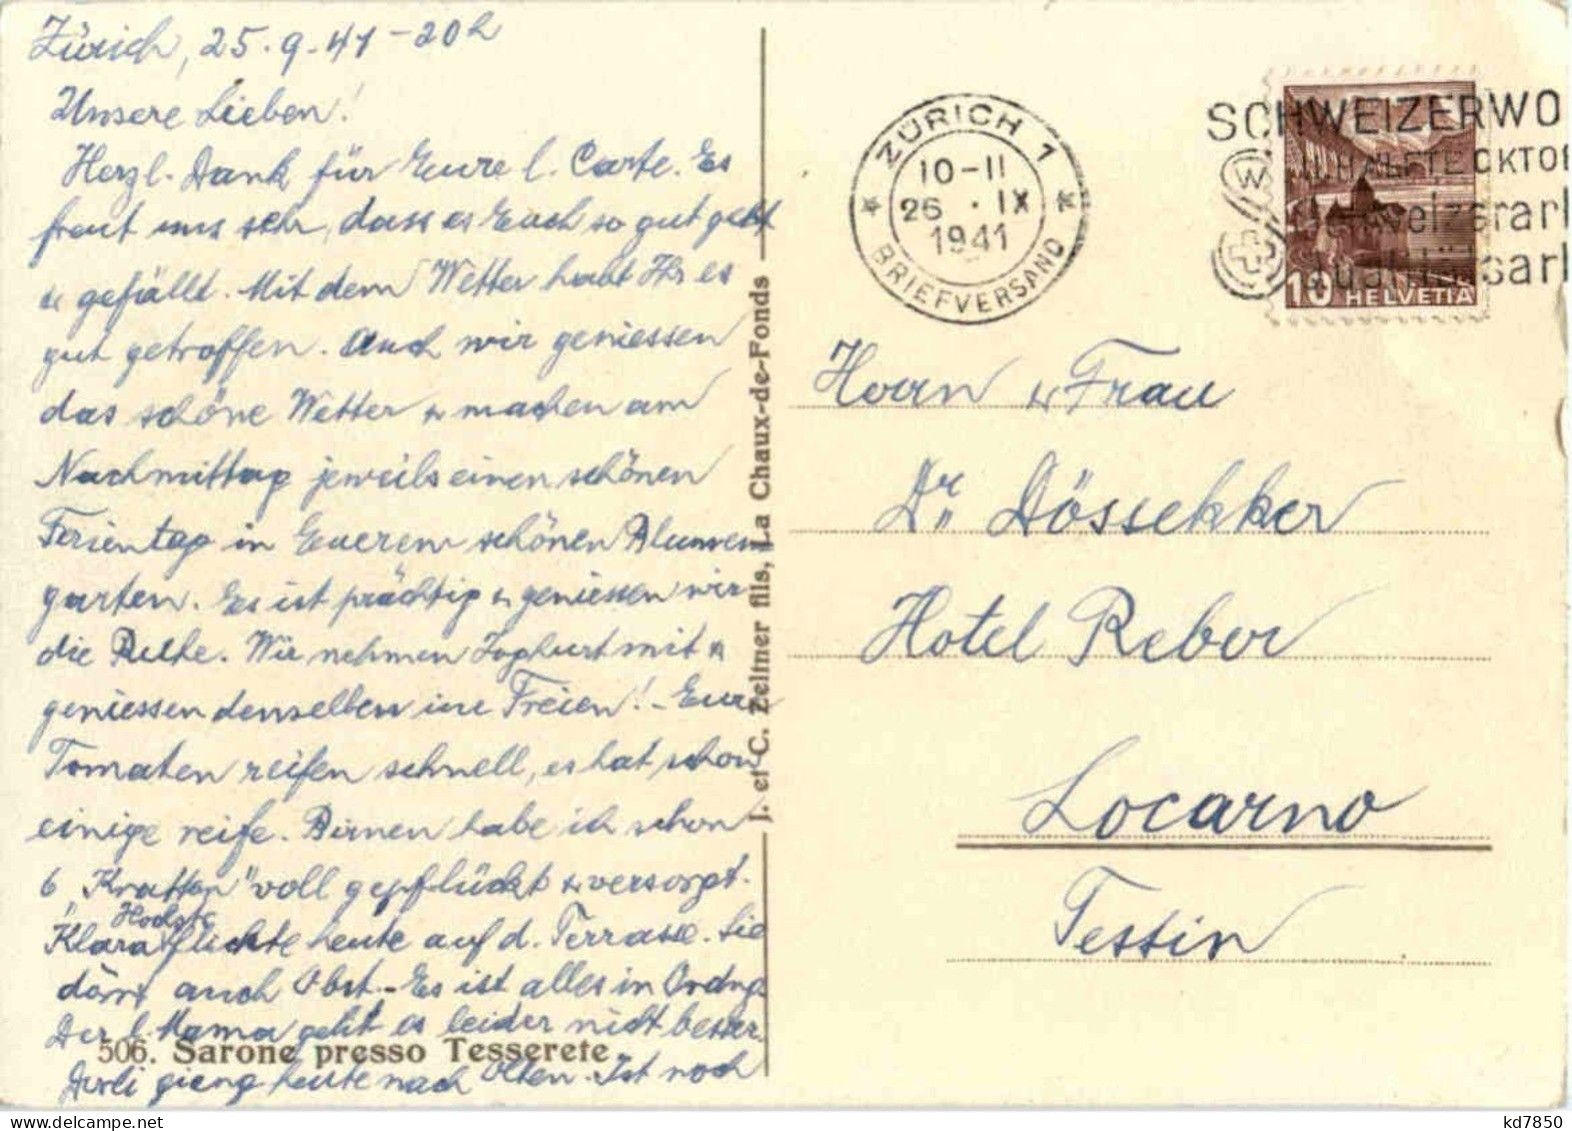 Zürich, 25.9.41 - 20h
Unsere Lieben!
Herzl. Dank für Eure l. Carte. Es
freut uns sehr, dass es Euch so gut geht
& gefällt. Mit dem Wetter habt Ihr es
gut getroffen. Auch wir geniessen
das schöne Wetter & machen am
Nachmittag jeweils einen schönen
Ferientag in Euerem schönen Blumen
garten. Es ist prächtig & geniessen wir
die Ruhe. Wir nehmen Joghurt mit &
geniessen denselben im Freien! - Eure
Tomaten reifen schnell, es hat schon
einige reife. Birnen habe ich schon
6 „Kratten" voll gepflückt & versorgt.
Klara flickte heute auf d. Terrasse. Sie
dörrt auch Obst. - Es ist alles in Ordng.
Der l. Mama geht es leider nicht besser.
gieng heute nach Olten. Ist noch
506. Sarone presso Tesserete
J. et C. Zeltner fils, La Chaux-de-Fonds
ZÜRICH 1
10-11
26 . IX
1941
BRIEFVERSAND
SCHWEIZERWO
W
HÄLFTE OKTOB
10 HELVETIA
Herrn & Frau
Dr. Dössekker
Hotel Reber
Locarno
Tessin
kd7850